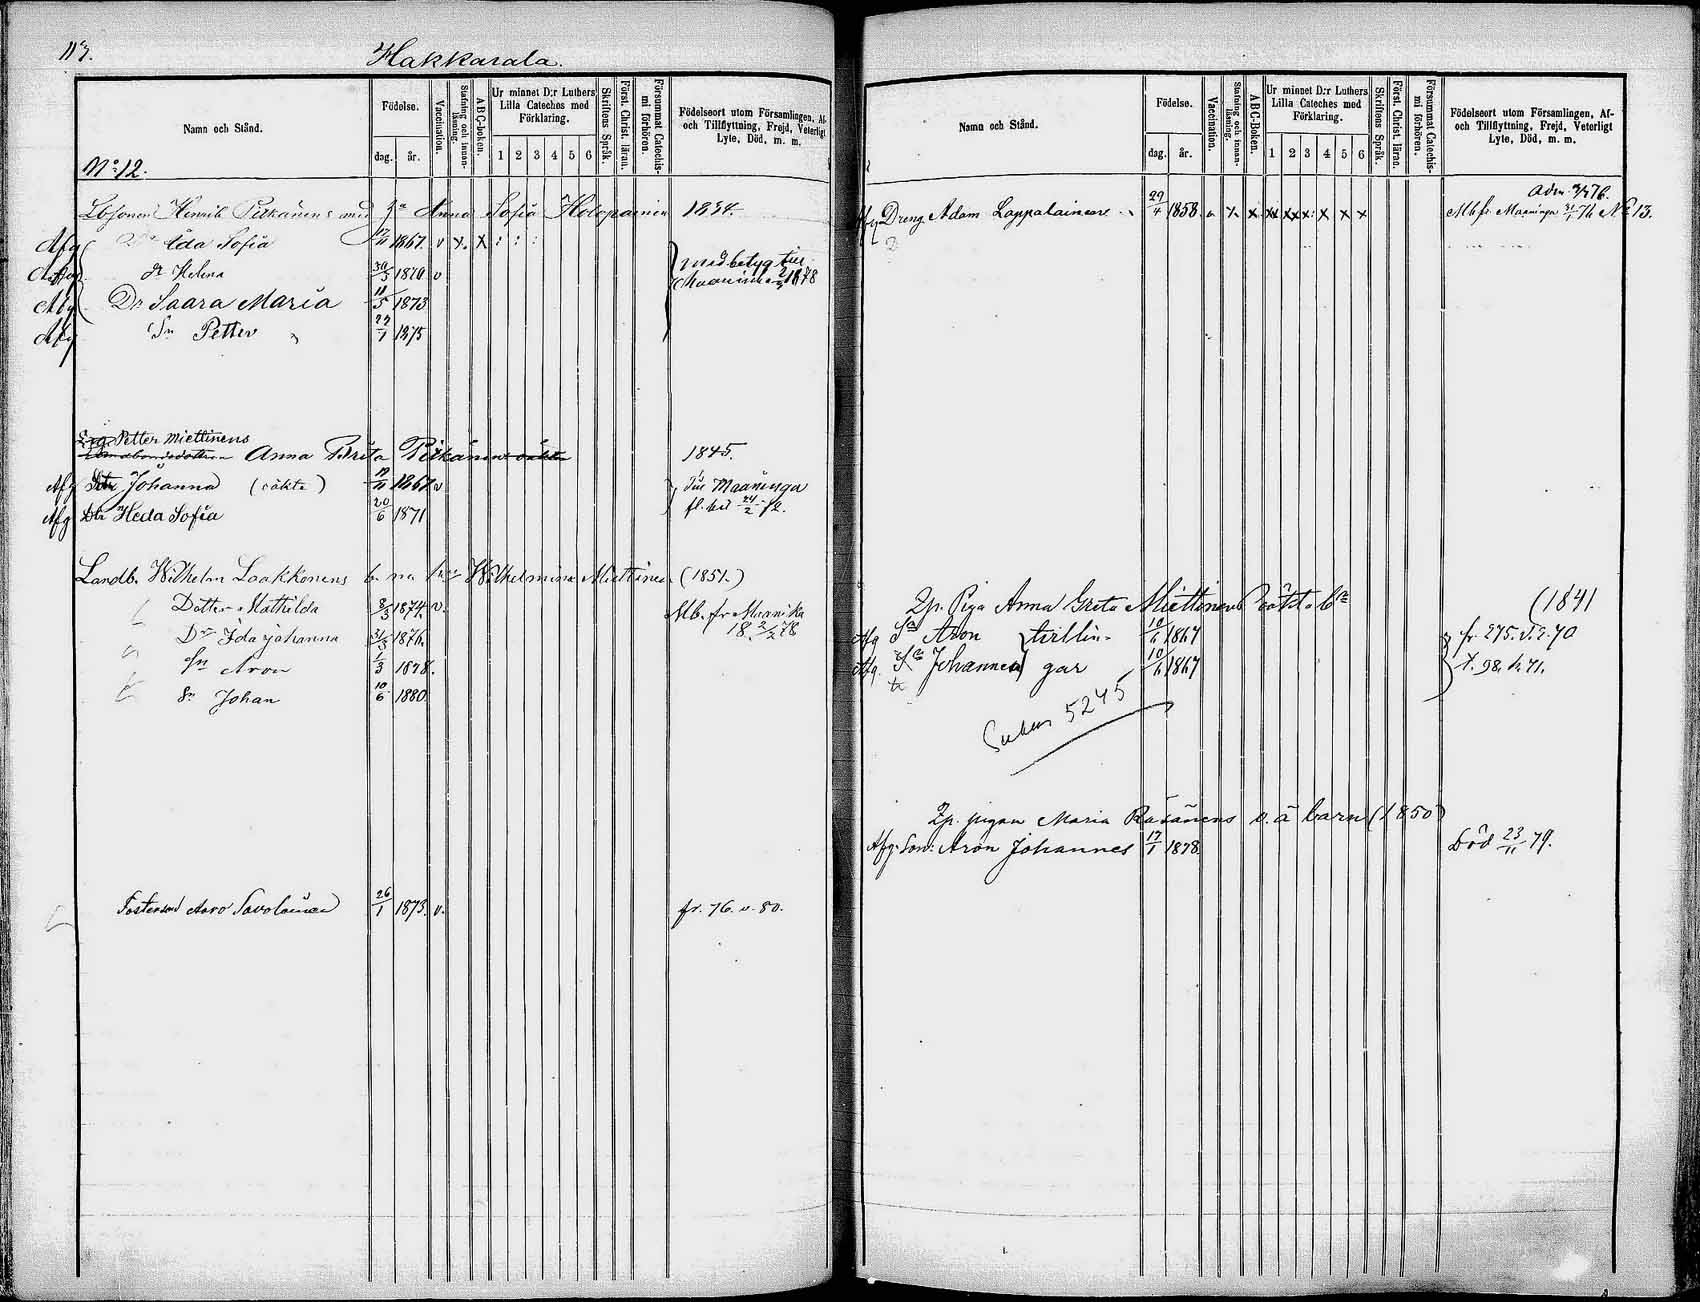 113.
Hakkarala.
Namn och Stånd.
Födelse.
dag. år.
Vaccination.
Stafning och innan-läsning.
ABC-boken.
Ur minnet D:r Luthers Lilla Cateches med Förklaring.
1 2 3 4 5 6
Skriftens Språk.
Först. Christ. läran.
Försummat Catechis-mi förhören.
Födelseort utom Församlingen, Af-
och Tillflyttning, Frejd, Veterligt
Lyte, Död, m. m.
No 12.
Henrik Pitkänens med Anna Sofia Holopainen 1834.
Afg Dr Ida Sofia 1867. v x x : : :
dr Helena 30/3 1870 v med betyg till
Afg Dr Saara Maria 11/5 1873 Maaninka 1878
Afg Sn Petter 27/1 1875
Petter Miettinens
Anna Brita Pitkänen 1845.
Afg Dtr Johanna (oäkta) 1867 v till Maaninga
Afg Dtr Heda Sofia 20/6 1871 24/2 72.
Landb. Wilhelm Laakkonens b. Wilhelmina Miettinen (1851.)
Dotter Mathilda 8/3 1874. v. Mb. fr Maaninka
Dr Ida Johanna 31/3 1876. 18 2/2 78
Sn Aron 1/3 1878.
Sn Johan 10/6 1880
Fosterson Aaro Savolainen 26/1 1873. v. fr. 76. v. 80.
Namn och Stånd.
Födelse.
dag. år.
Vaccination.
Stafning och innan-läsning.
ABC-Boken.
Ur minnet D:r Luthers Lilla Cateches med Förklaring.
1 2 3 4 5 6
Skriftens Språk.
Först. Christ. läran.
Försummat Catechis-mi förhören.
Födelseort utom Församlingen, Af-
och Tillflyttning, Frejd, Veterligt
Lyte, Död, m. m.
Afg Dreng Adam Lappalainen 29/4 1858 Maaninga 76 No 13.
Piga Anna Greta Miettinens oäkta (1841
Afg Sn Aron tvillin- 10/6 1867 fr. 275. 70
Afg Johannes gar 10/6 1867 t. 98. 71.
5245
pigan Maria Räsänens o. ä barn (1850)
Afg. Son: Aron Johannes 17/1 1878. Död 23/11 79.